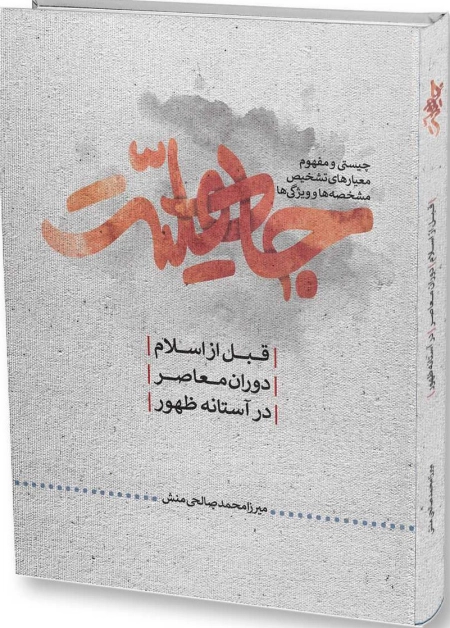 چیستی و مفهوم
معیارهای تشخیص
مشخصه‌ها و ویژگی‌ها
جاهلیّت
| قبل از اسلام |
| دوران معاصر |
| در آستانه ظهور |
میرزامحمدصالحی‌منش
جاهلیّت
قبل از اسلام | دوران معاصر | در آستانه ظهور |
میرزامحمدصالحی‌منش